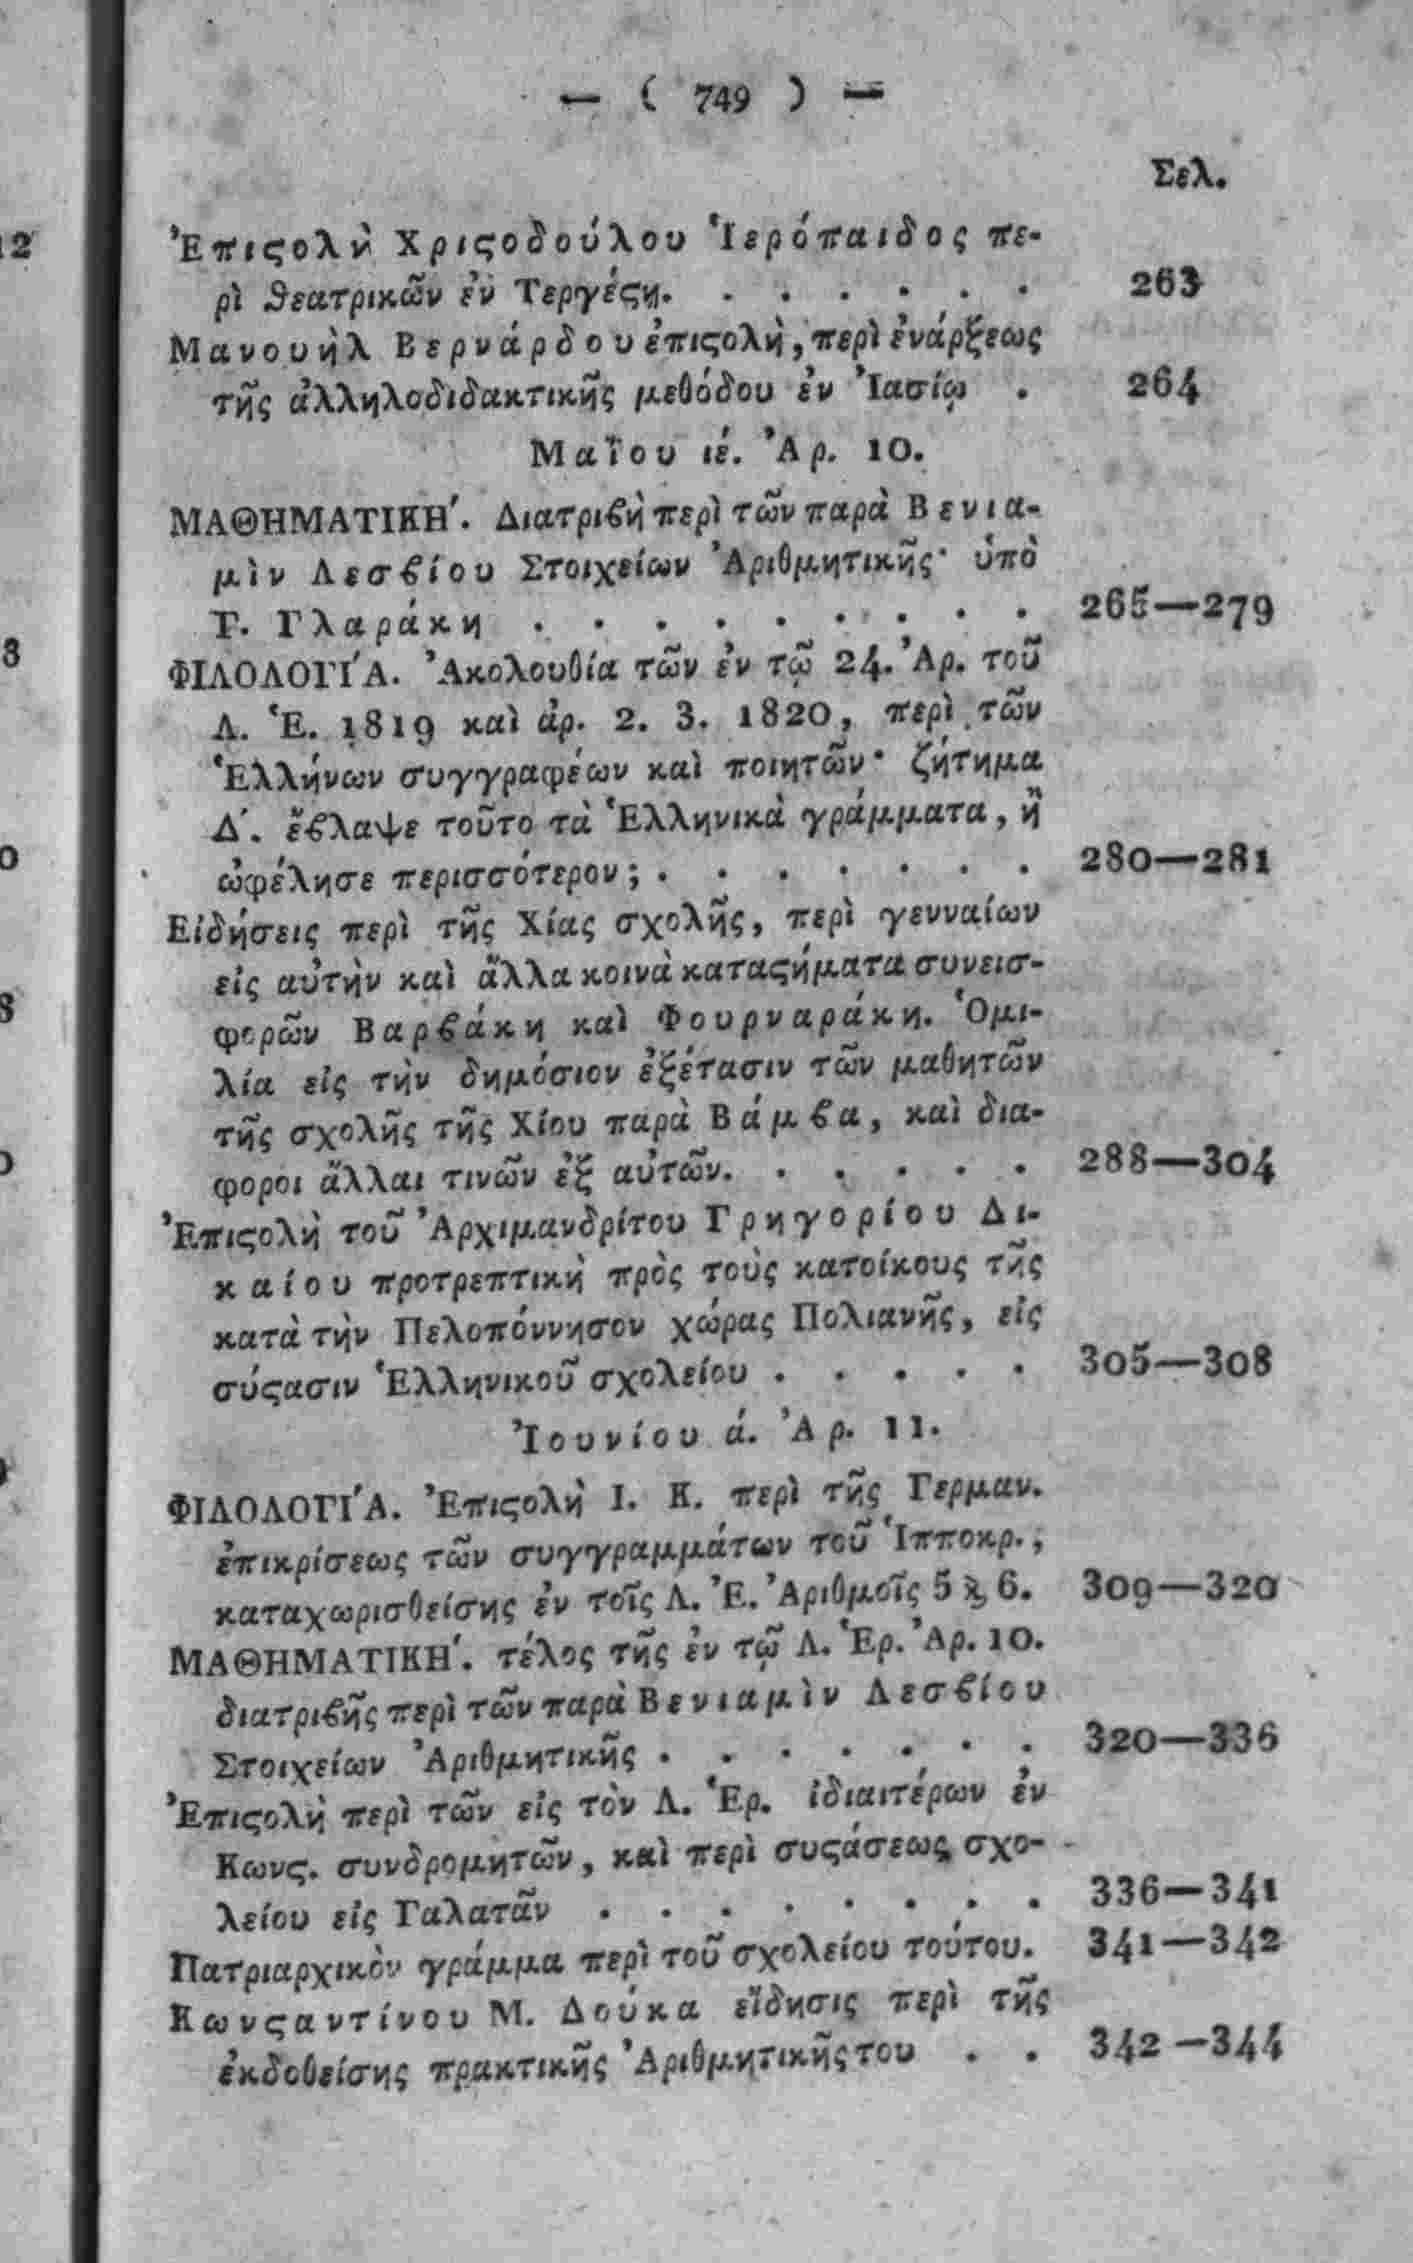 — ( 749 ) —
Σελ.
Ἐπιϛολὴ Χριϛοδούλου Ἱερόπαιδος πε-
ρὶ ϑεατρικῶν ἐν Τεργέϛῃ. . . . . . . 263
Μανουὴλ Βερνάρδου ἐπιϛολὴ, περὶ ἐνάρξεως
τῆς ἀλληλοδιδακτικῆς μεθόδου ἐν Ἰασίῳ . 264
Μαΐου ιέ. Ἀρ. 10.
ΜΑΘΗΜΑΤΙΚΗ΄. Διατριϐὴ περὶ τῶν παρὰ Βενια-
μὶν Λεσϐίου Στοιχείων Ἀριθμητικῆς· ὑπὸ
Γ. Γλαράκη . . . . . . . . . 265—279
ΦΙΛΟΛΟΓΙ΄Α. Ἀκολουθία τῶν ἐν τῷ 24. Ἀρ. τοῦ
Λ. Ἑ. 1819 καὶ ἀρ. 2. 3. 1820, περὶ τῶν
Ἑλλήνων συγγραφέων καὶ ποιητῶν· ζήτημα
Δ΄. ἔϐλαψε τοῦτο τὰ Ἑλληνικὰ γράμματα, ἢ
ὠφέλησε περισσότερον; . . . . . . . 280—281
Εἰδήσεις περὶ τῆς Χίας σχολῆς, περὶ γενναίων
εἰς αὐτὴν καὶ ἄλλα κοινὰ καταϛήματα συνεισ-
φορῶν Βαρϐάκη καὶ Φουρναράκη. Ὁμι-
λία εἰς τὴν δημόσιον ἐξέτασιν τῶν μαθητῶν
τῆς σχολῆς τῆς Χίου παρὰ Βάμϐα, καὶ διά-
φοροι ἄλλαι τινῶν ἐξ αὐτῶν. . . . . . 288—304
Ἐπιϛολὴ τοῦ Ἀρχιμανδρίτου Γρηγορίου Δι-
καίου προτρεπτικὴ πρὸς τοὺς κατοίκους τῆς
κατὰ τὴν Πελοπόννησον χώρας Πολιανῆς, εἰς
σύϛασιν Ἑλληνικοῦ σχολείου . . . . . 305—308
Ἰουνίου ά. Ἀρ. 11.
ΦΙΛΟΛΟΓΙ΄Α. Ἐπιϛολὴ Ι. Κ. περὶ τῆς Γερμαν.
ἐπικρίσεως τῶν συγγραμμάτων τοῦ Ἱπποκρ.,
καταχωρισθείσης ἐν τοῖς Λ. Ἑ. Ἀριθμοῖς 5 ϗ 6. 309—320
ΜΑΘΗΜΑΤΙΚΗ΄. τέλος τῆς ἐν τῷ Λ. Ἑρ. Ἀρ. 10.
διατριϐῆς περὶ τῶν παρὰ Βενιαμὶν Λεσϐίου
Στοιχείων Ἀριθμητικῆς . . . . . . . 320—336
Ἐπιϛολὴ περὶ τῶν εἰς τὸν Λ. Ἑρ. ἰδιαιτέρων ἐν
Κωνϛ. συνδρομητῶν, καὶ περὶ συϛάσεως σχο-
λείου εἰς Γαλατᾶν . . . . . . . . 336—341
Πατριαρχικὸν γράμμα περὶ τοῦ σχολείου τούτου. 341—342
Κωνϛαντίνου Μ. Δούκα εἴδησις περὶ τῆς
ἐκδοθείσης πρακτικῆς Ἀριθμητικῆς του . . 342—344